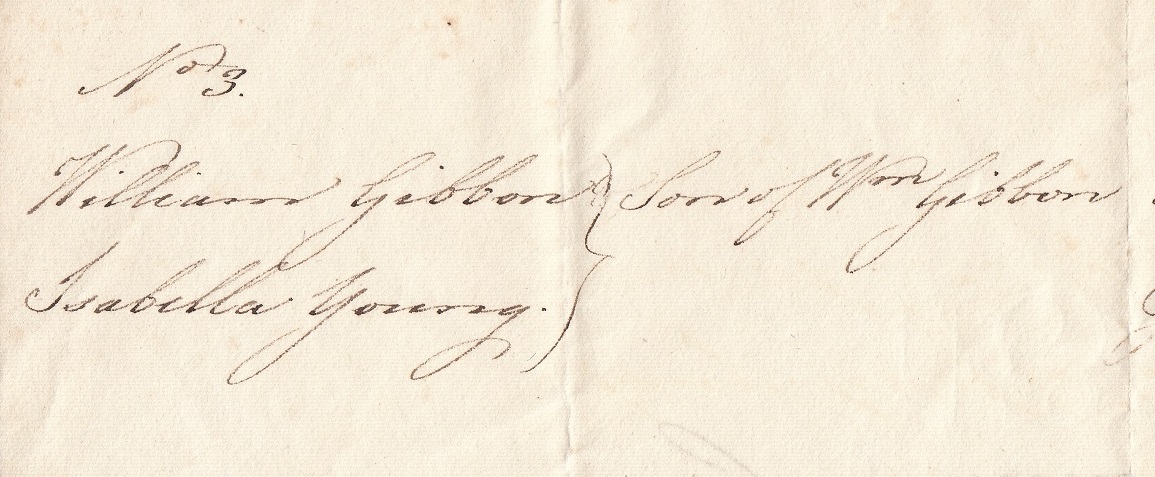 No 3.
William Gibbon } Son of Wm Gibbon
Isabella Young.